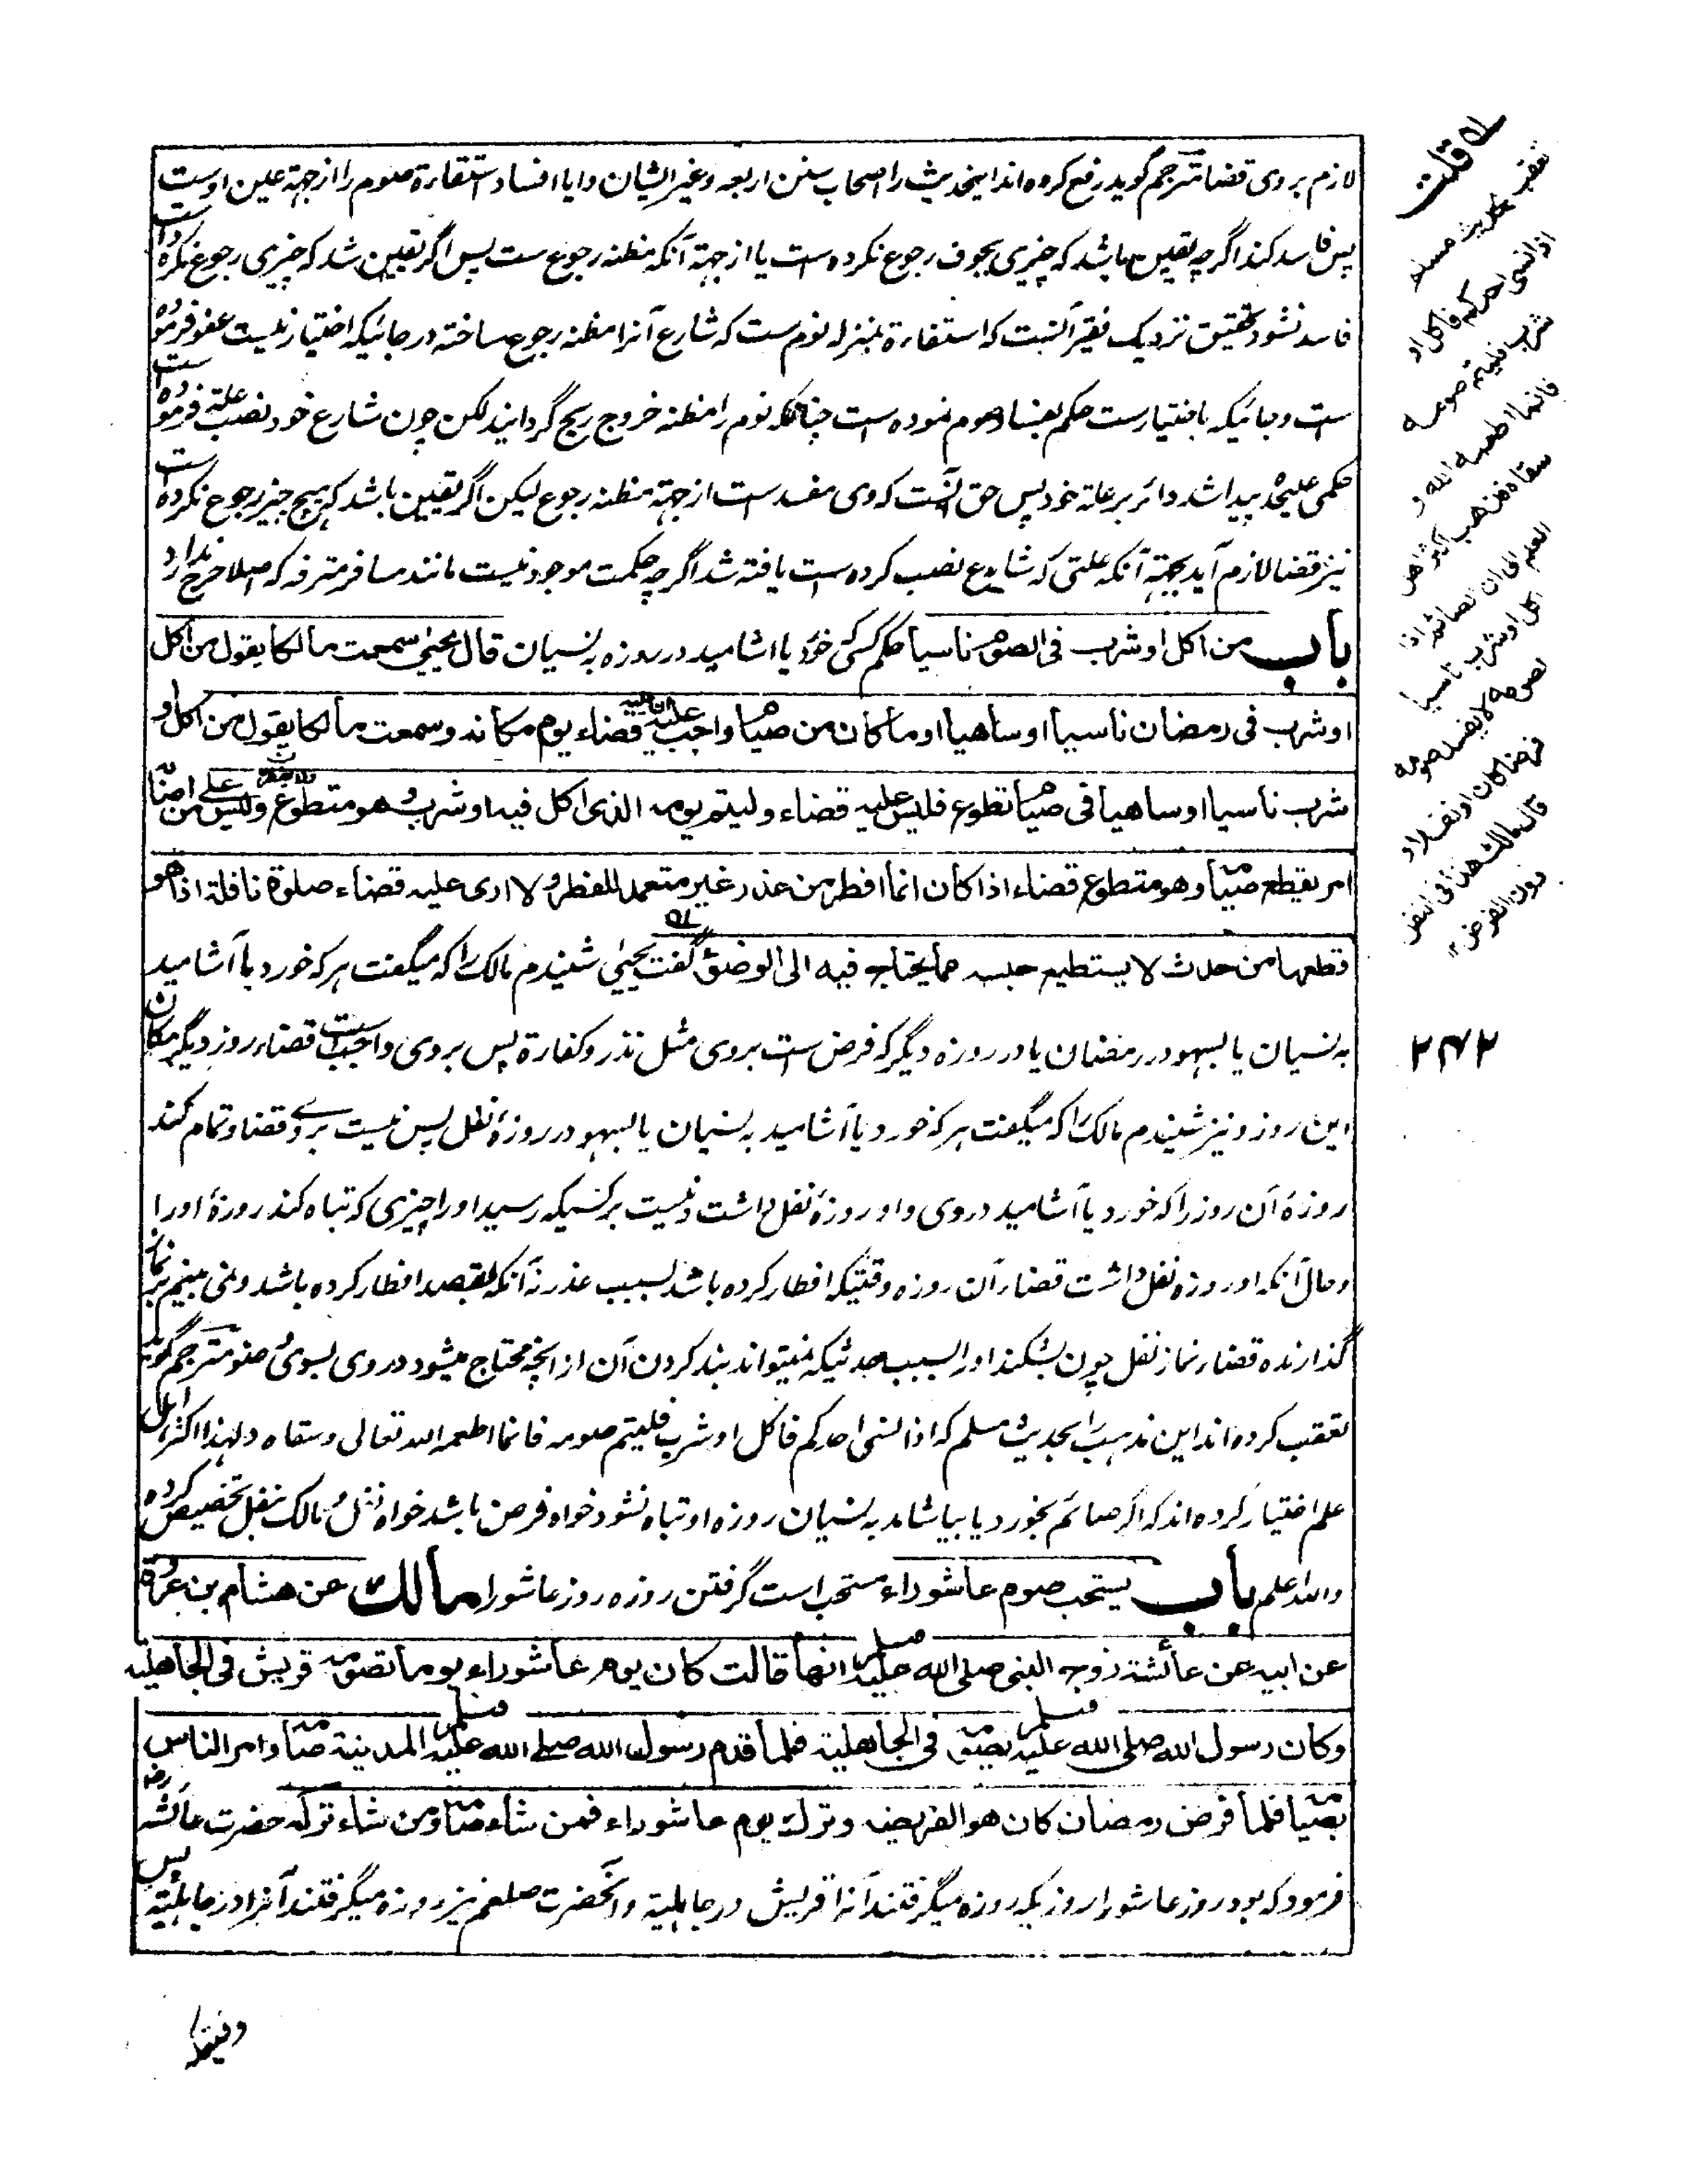 لازم بروی قضا مترجم گوید رفع کرده اند اینحدیث را اصحاب سنن اربعه و غیر ایشان و ایا افساد استقاءة صوم را از جهة عین اوست
پس فاسد کند اگرچه یقین باشد که چیزی بجوف رجوع نکرده است یا از جهة آنکه مظنه رجوع ست پس اگر یقین شد که چیزی رجوع نکرده است
فاسد نشود تحقیق نزدیک فقیر آنست که استقاءة بمنزله نوم ست که شارع آنرا مظنه رجوع ساخته در جائیکه اختیار نیست عفو فرموده
ست و جائیکه باختیارست حکم بفساد صوم نموده است چنانکه نوم را مظنه خروج ریح گردانید لکن چون شارع خود نصب علة فرموده است
حکمی علیحده پیدا شد دائر بر علة خود پس حق آنست که وی مفسد ست از جهة مظنه رجوع لیکن اگر یقین باشد که هیچ چیز رجوع نکرده است
نیز قضا لازم آید بجهة آنکه علتی که شارع نصب کرده ست یافته شد اگرچه حکمت موجود نیست مانند مسافر مترفه که اصلا حرج ندارد
باب من اکل او شرب فی الصوم ناسیا حکم کسی که خورد یا اشامید در روزه به نسیان قال یحیی سمعت مالکا یقول من اکل
او شرب فی رمضان ناسیا او ساهیا او ما کان من صیام واجب علیه ان علیه قضاء یوم مکانه و سمعت مالکا یقول من اکل او
شرب ناسیا او ساهیا فی صیام تطوع فلیس علیه قضاء ولیتم یومه الذی اکل فیه او شرب وهو متطوع ولا یفطره ولیس علی من اصابه
امر یقطع صیامه وهو متطوع قضاء اذا کان انما افطر من عذر غیر متعمد للفطر ولا اری علیه قضاء صلوة نافلة اذا هو
قطعها من حدث لا یستطیع حبسه مما یحتاج فیه الی الوضوء گفت یحیی شنیدم مالک را که میگفت هر که خورد یا آشامید
به نسیان یا بسهو در رمضان یا در روزه دیگر که فرض ست بروی مثل نذر و کفارة پس بروی واجب است قضاء روز دیگر مکان
این روز و نیز شنیدم مالک را که میگفت هر که خورد یا آشامید به نسیان یا بسهو در روزهٔ نفل پس نیست بروی قضا و تمام کند
روزهٔ آن روز را که خورد یا آشامید در وی و او روزهٔ نفل داشت و نیست بر کسیکه رسید او را چیزی که تباه کند روزهٔ او را
و حال آنکه او روزه نفل داشت قضاء آن روزه وقتیکه افطار کرده باشد بسبب عذر نه آنکه بقصد افطار کرده باشد و نمی بینم بر نماز
گذارنده قضاء نماز نفل چون بشکند او را بسبب حدثیکه نمیتواند بند کردن آن از انچه محتاج میشود در وی بسوی وضو مترجم گوید
تعقب کرده اند این مذهب را بحدیث مسلم که اذا نسی احدکم فاکل او شرب فلیتم صومه فانما اطعمه الله تعالی و سقاه و لهذا اکثر اهل
علم اختیار کرده اند که اگر صائم بخورد یا بیاشامد به نسیان روزه او تباه نشود خواه فرض باشد خواه نفل و مالک بنفل تخصیص کرده
والله اعلم باب یستحب صوم عاشوراء مستحب است گرفتن روزه روز عاشورا مالک عن هشام بن عروة
عن ابیه عن عائشة زوجه النبی صلی الله علیه وسلم انها قالت کان یوم عاشوراء یوما تصومه قریش فی الجاهلیة
وکان رسول الله صلی الله علیه وسلم یصومه فی الجاهلیة فلما قدم رسول الله صلی الله علیه وسلم المدینة صامه وامر الناس
بصیامه فلما فرض رمضان کان هو الفریضه وترک یوم عاشوراء فمن شاء صامه ومن شاء ترکه حضرت عائشه رضی
فرمود که بود روز عاشورا روزیکه روزه میگرفتند آنرا قریش در جاهلیة و آنحضرت صلعم نیز روزه میگرفتند آنرا در جاهلیة پس
وقتیکه
له قلت
تعقب بحدیث مسلم
اذا نسی احدکم فاکل او
شرب فلیتم صومه
فانما اطعمه الله و
سقاه فذهب اکثر اهل
العلم الی ان الصائم اذا
اکل او شرب ناسیا
لصومه لا یفسد صومه
فرضا کان او نفلا و
قال مالک هذا فی النفل
دون الفرض ۱۲
۲۴۲